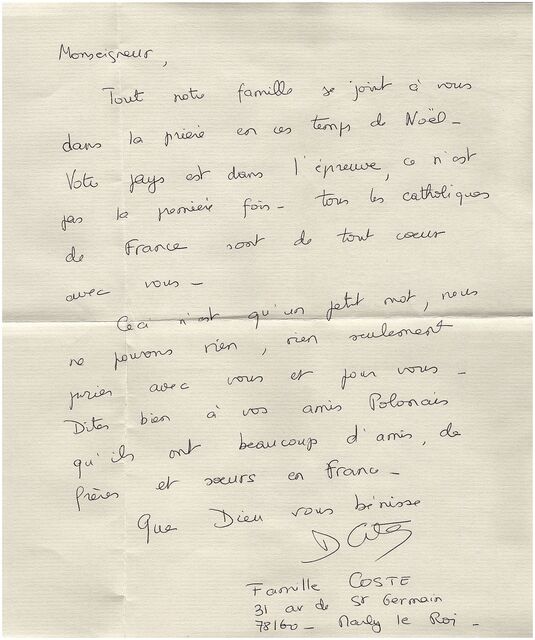 Monseigneur,
Tout notre famille se joint à vous
dans la prière en ces temps de Noël –
Votre pays est dans l'épreuve, ce n'est
pas la première fois – tous les catholiques
de France sont de tout coeur
avec vous –
Ceci n'est qu'un petit mot, nous
ne pouvons rien, rien seulement
prier avec vous et pour vous –
Dites bien à vos amis Polonais
qu'ils ont beaucoup d'amis, de
frères et soeurs en France –
Que Dieu vous bénisse
Famille COSTE
31 av de St Germain
78160 – Marly le Roi –